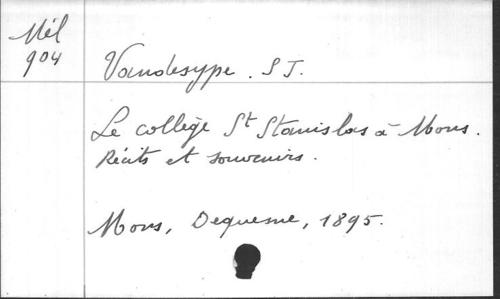 Mél
904
Vandesype. S J.
Le collège St Stanislas à Mons.
Récits et souvenirs.
Mons, Dequesne, 1895.